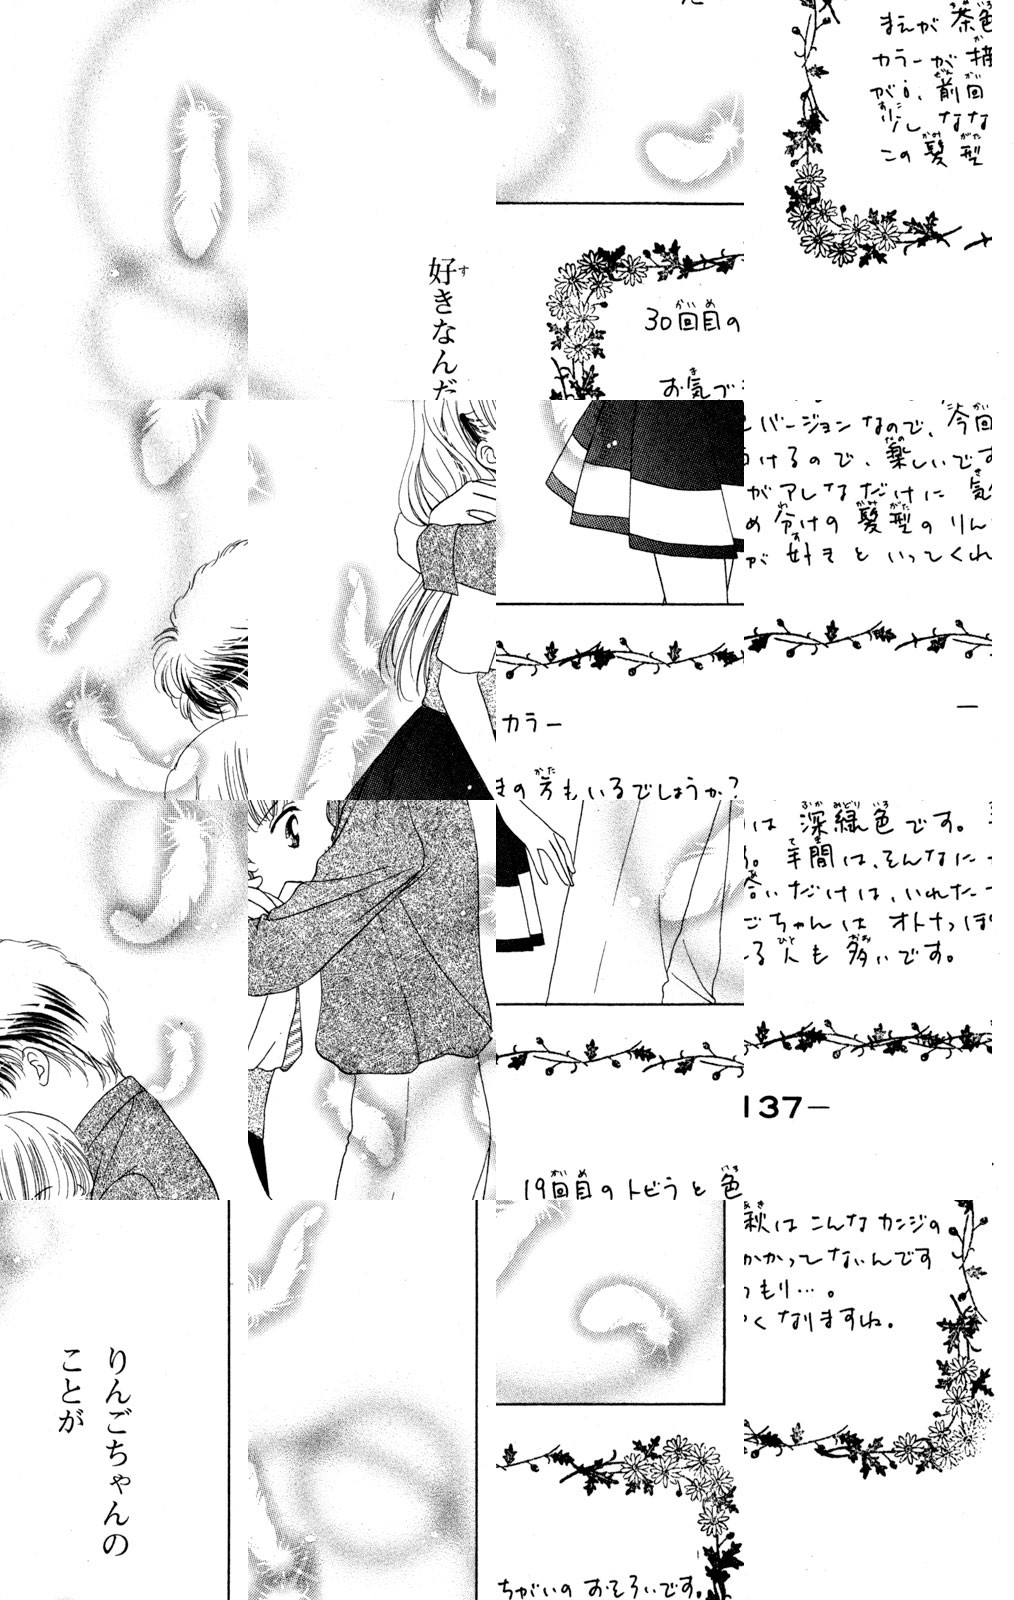 りんごちゃんの
ことが
好きなんだ
30回目のカラー 19回目のトビラと色ちがいのおそろいです。
お気づきの方もいるでしょうか?
まえが茶色バージョンなので、今回は深緑色です。秋はこんなカンジの
カラーが描けるので、楽しいです。手間は、そんなにかかってないんです
が、前回がアレなだけに気合いだけは、いれたつもり…。
少しななめ分けの髪型のりんごちゃんはオトナっぽくなりますね。
この髪型が好きといってくれる人も多いです。
—137—